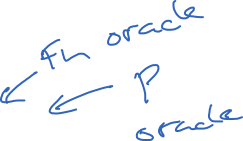 Fn oracle
P
oracle